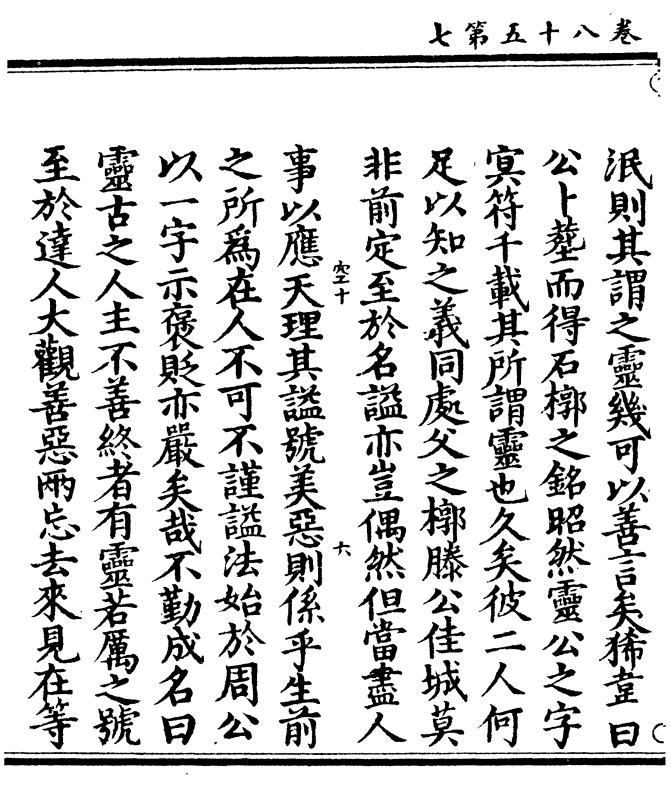 卷八十五第七
泯則其謂之靈幾可以善言矣狶韋曰
公卜塟而得石槨之銘昭然靈公之字
冥符千載其所謂靈也久矣彼二人何
足以知之義同處父之槨滕公佳城莫
非前定至於名謚亦豈偶然但當盡人
事以應天理其謚號美惡則係乎生前
空十
六
之所爲在人不可不謹謚法始於周公
以一字示褒貶亦嚴矣哉不勤成名曰
靈古之人主不善終者有靈若厲之號
至於達人大觀善惡兩忘去來見在等